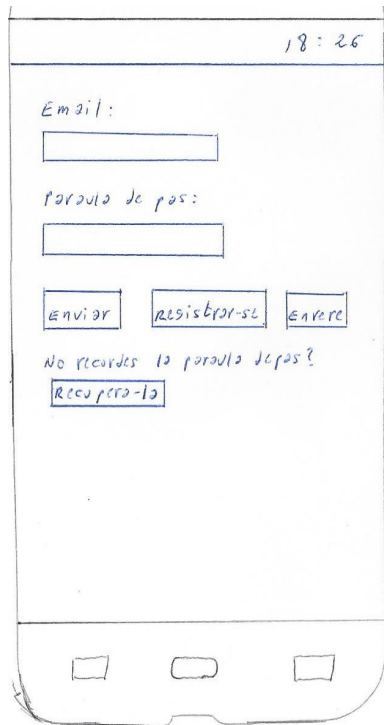 18:26
Email:
Paraula de pas:
Enviar Registrar-se Enrere
No recordes la paraula de pas?
Recupera-la